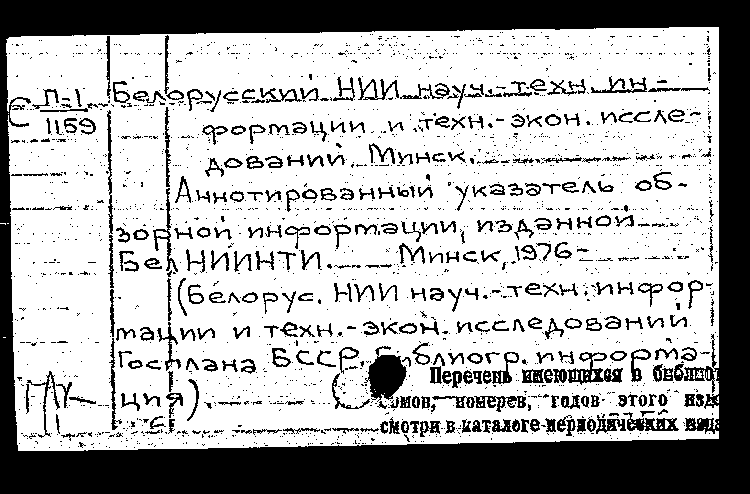 С П-1 Белорусский НИИ науч.-техн. ин-
1159 формации и техн.-экон. иссле-
дований. Минск.
Аннотированный указатель об-
зорной информации, изданной
БелНИИНТИ. Минск, 1976-
(Белорус. НИИ науч.-техн. инфор-
мации и техн.-экон. исследований
Госплана БССР. Библиогр. информа-
ция).
Перечень имеющихся в библиот
номеров, годов этого изд
смотри в каталоге периодических изда